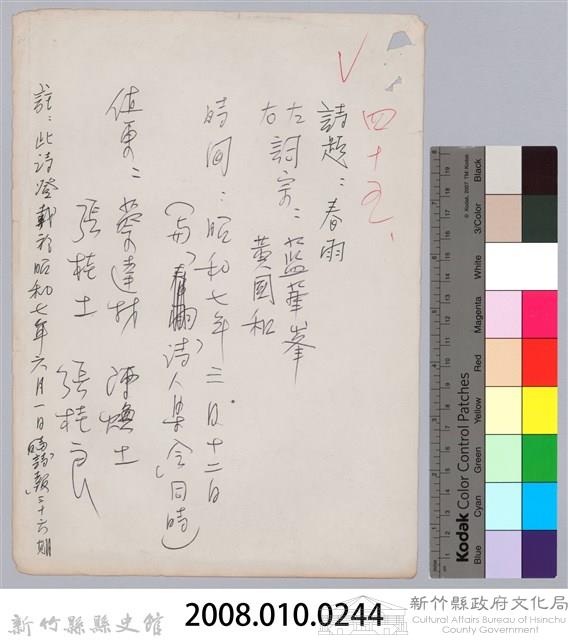 四十五、
詩題：春雨
左詞宗：藍華峯
右　　　黃國和
時間：昭和七年三月十二日
（與「春潮」詩人集会同時）
值東：蔡達材　陳堙土
張桂土　張桂良
註：此詩登載於昭和七年六月一日「詩報」三十六期
Kodak Color Control Patches
© Kodak, 2007 TM: Kodak
Blue Cyan Green Yellow Red Magenta White 3/Color Black
新竹縣縣史館
2008.010.0244
新竹縣政府文化局
Cultural Affairs Bureau of Hsinchu
County Government